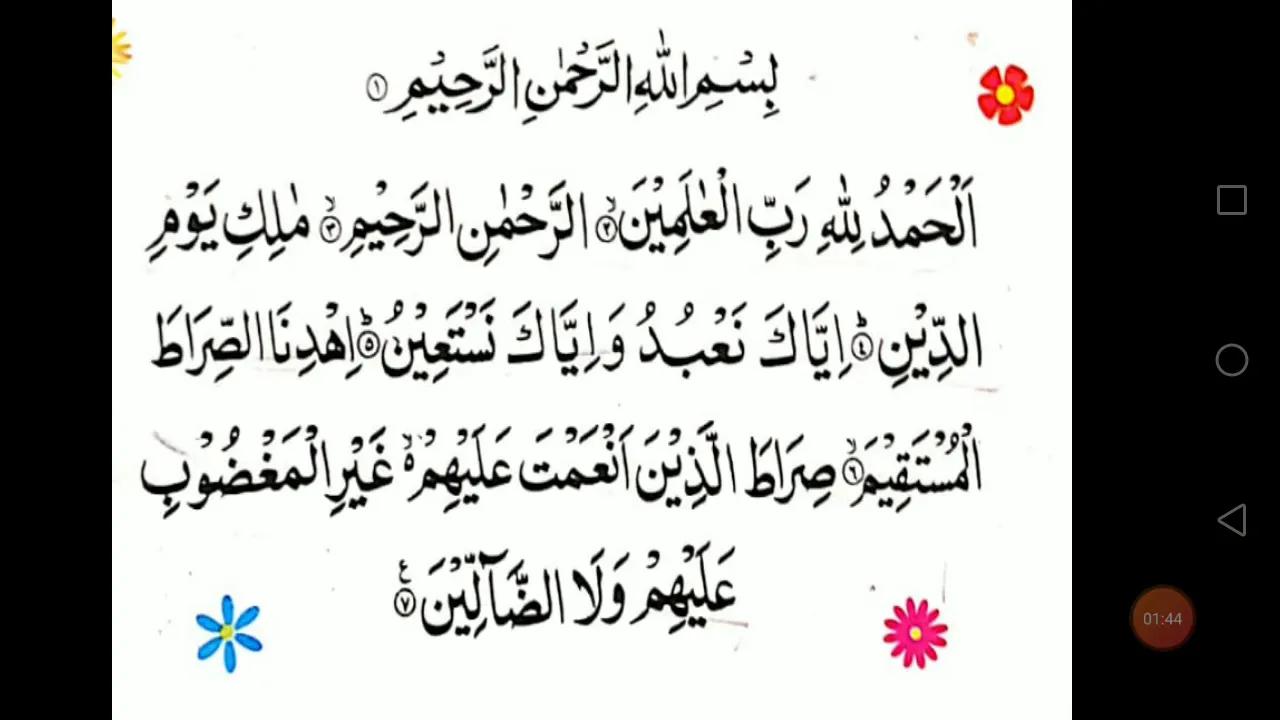 بِسْمِ اللّٰهِ الرَّحْمٰنِ الرَّحِيْمِ ۝۱
اَلْحَمْدُ لِلّٰهِ رَبِّ الْعٰلَمِيْنَ ۙ۝۲ الرَّحْمٰنِ الرَّحِيْمِ ۙ۝۳ مٰلِكِ يَوْمِ
الدِّيْنِ ؕ۝۴ اِيَّاكَ نَعْبُدُ وَ اِيَّاكَ نَسْتَعِيْنُ ؕ۝۵ اِهْدِنَا الصِّرَاطَ
الْمُسْتَقِيْمَ ۙ۝۶ صِرَاطَ الَّذِيْنَ اَنْعَمْتَ عَلَيْهِمْ ۙ۬ غَيْرِ الْمَغْضُوْبِ
عَلَيْهِمْ وَلَا الضَّآلِّيْنَ ۝۷ ع
01:44